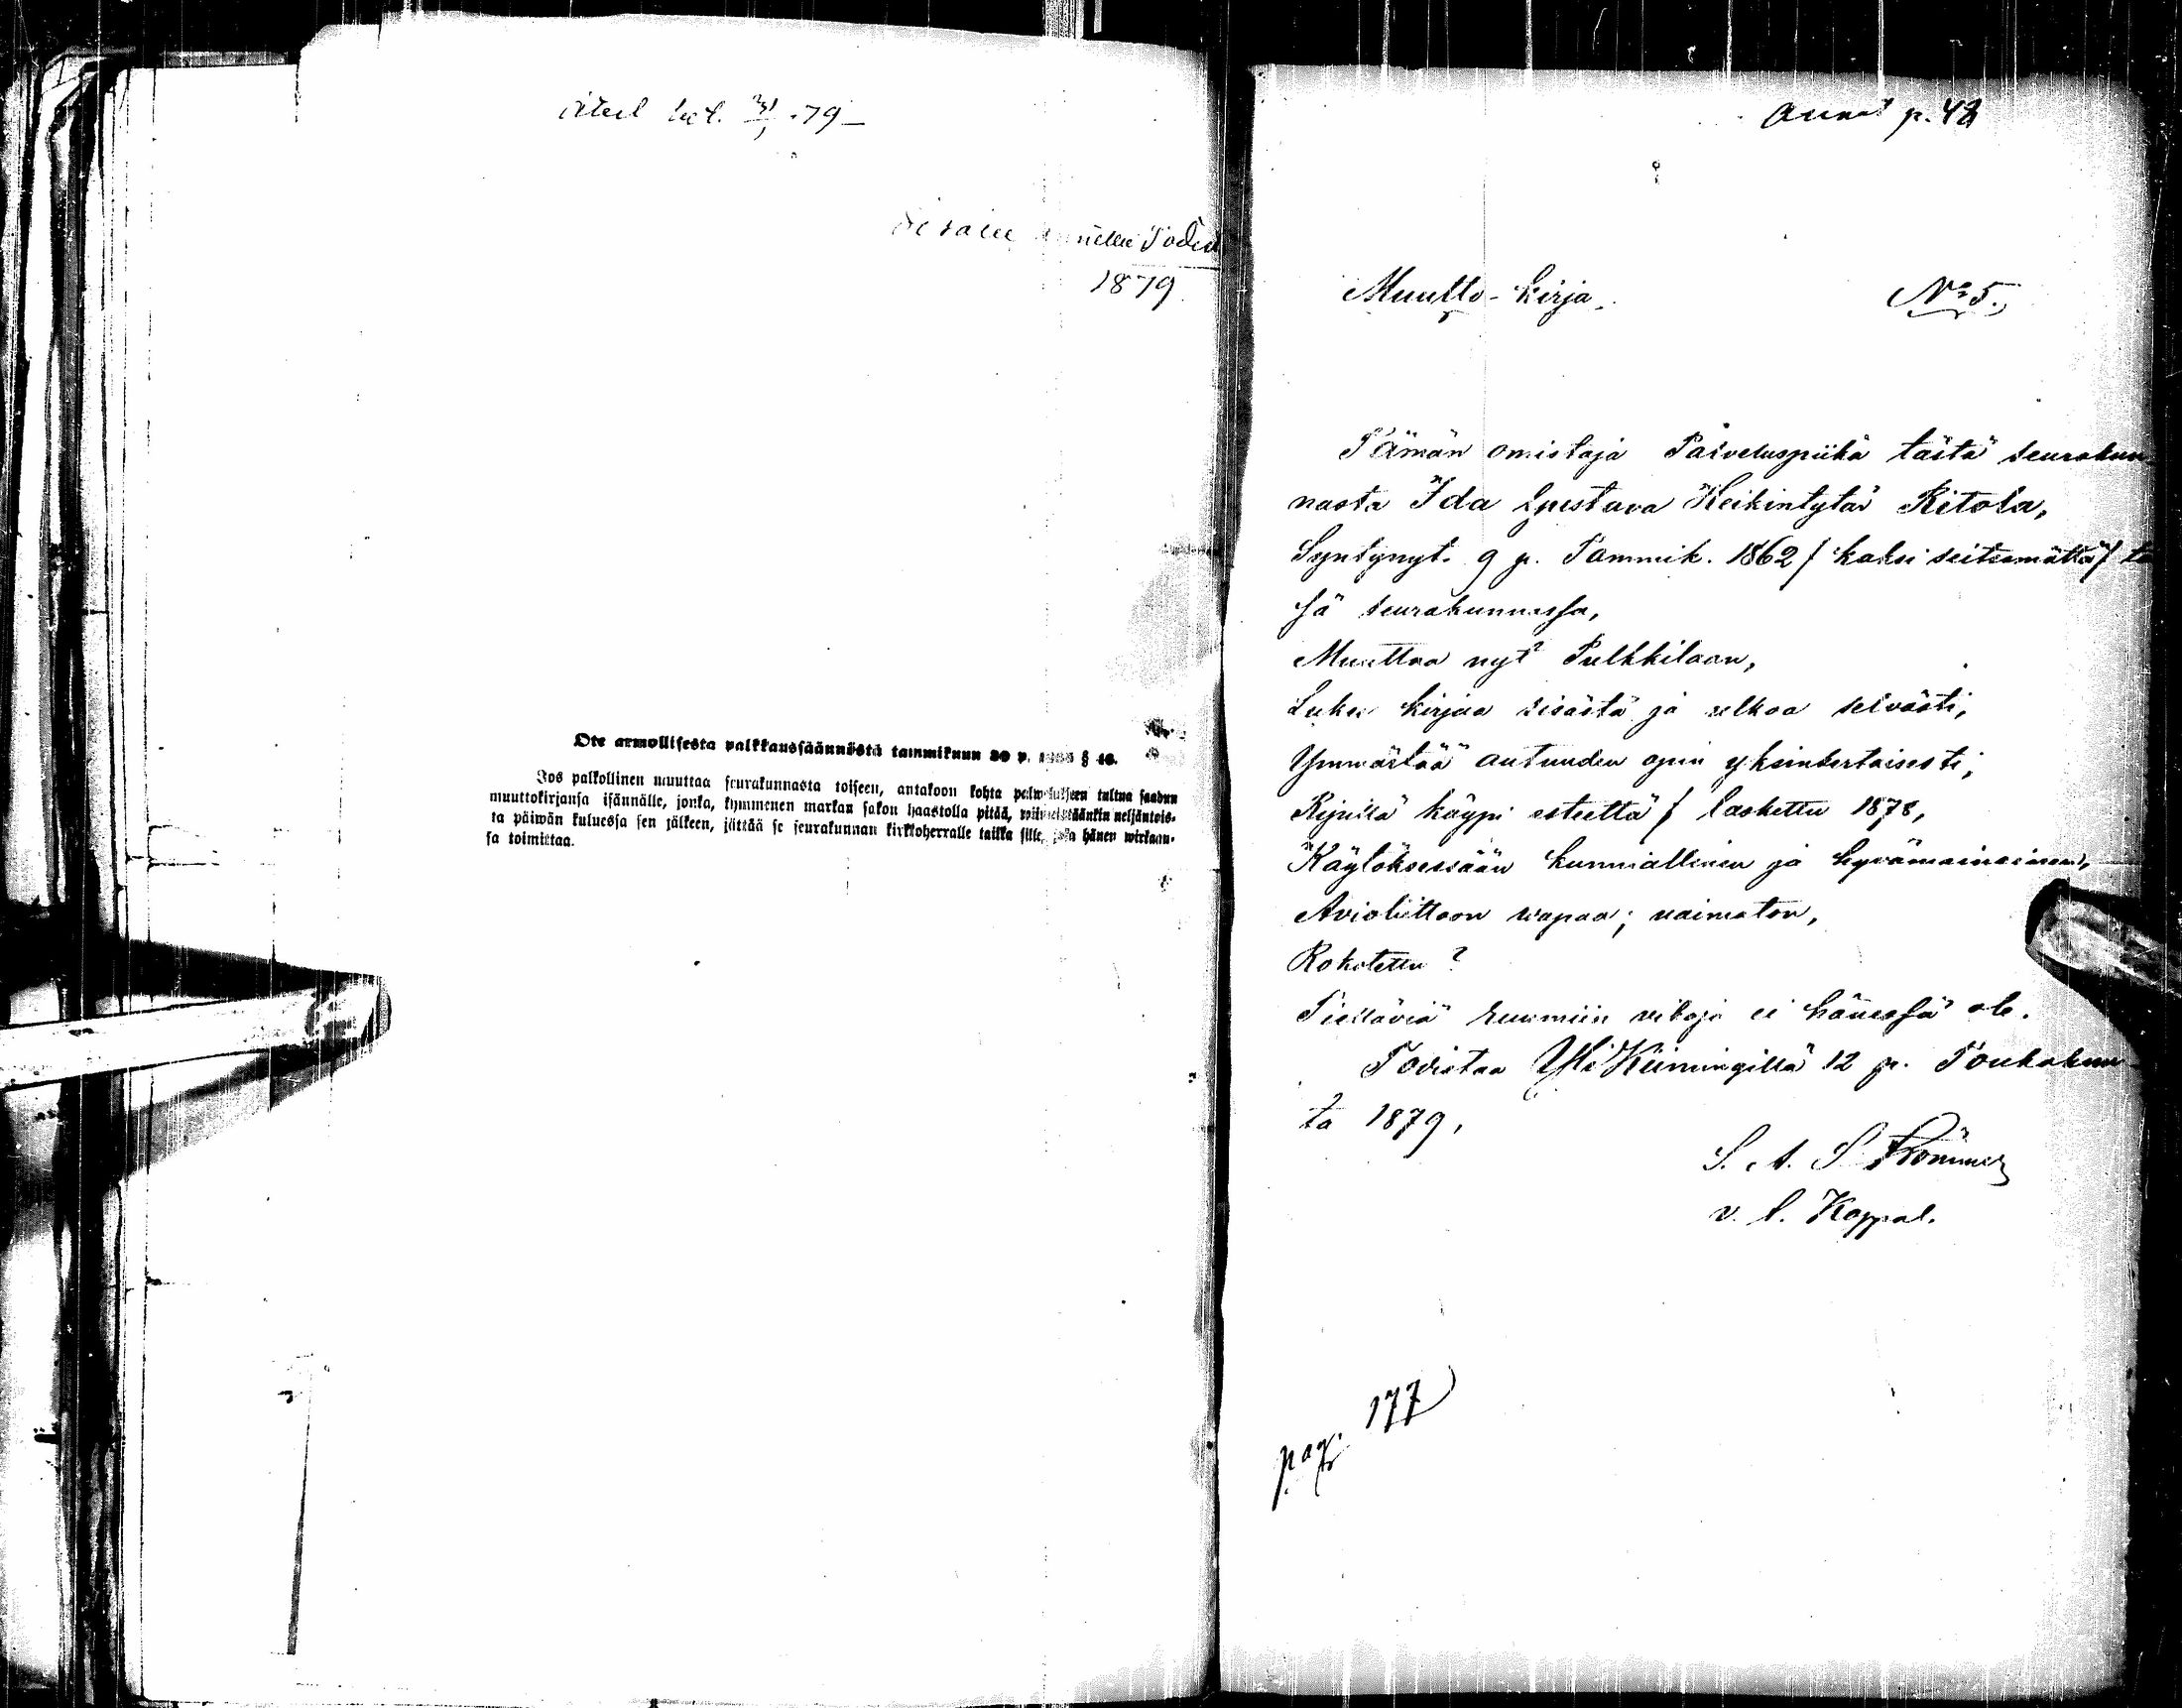 79
1879
Ote armollisesta palkkaussäännöstä tammikuun 30 p. § 46.
Jos palkollinen muuttaa seurakunnasta toiseen, antakoon kohta palwelukseen tultua saadun
muuttokirjansa isännälle, jonka, kymmenen markan sakon haastolla pitää, wiimeistäänkin neljäntois-
ta päiwän kuluessa sen jälkeen, jättää se seurakunnan kirkkoherralle taikka sille, joka hänen wirkaan-
sa toimittaa.
Annot p. 42
Muutto-kirja. No 5.,
Tämän omistaja Palveluspiika tästä seurakun-
nasta Ida Kustava Heikintytär Ritola,
Syntynyt. 9 p. Tammik. 1862 / kaksi seitsemättä / tä
ssä seurakunnassa,
Muuttaa nyt Pulkkilaan,
Lukee kirjaa sisästä ja ulkoa selvästi,
Ymmärtää autuuden opin yksinkertaisesti,
Ripillä käypi esteettä / laskettu 1878,
Käytöksessään kunniallinen ja hyvämaineinen,
Avioliittoon wapaa; naimaton,
Rokotettu ?
Tiettäviä ruumiin vikoja ei hänessä ole.
Todistaa Yli Kiimingillä 12 p. Toukokuu-
ta 1879,
S. A.
v. t. Kappal.
pag. 177